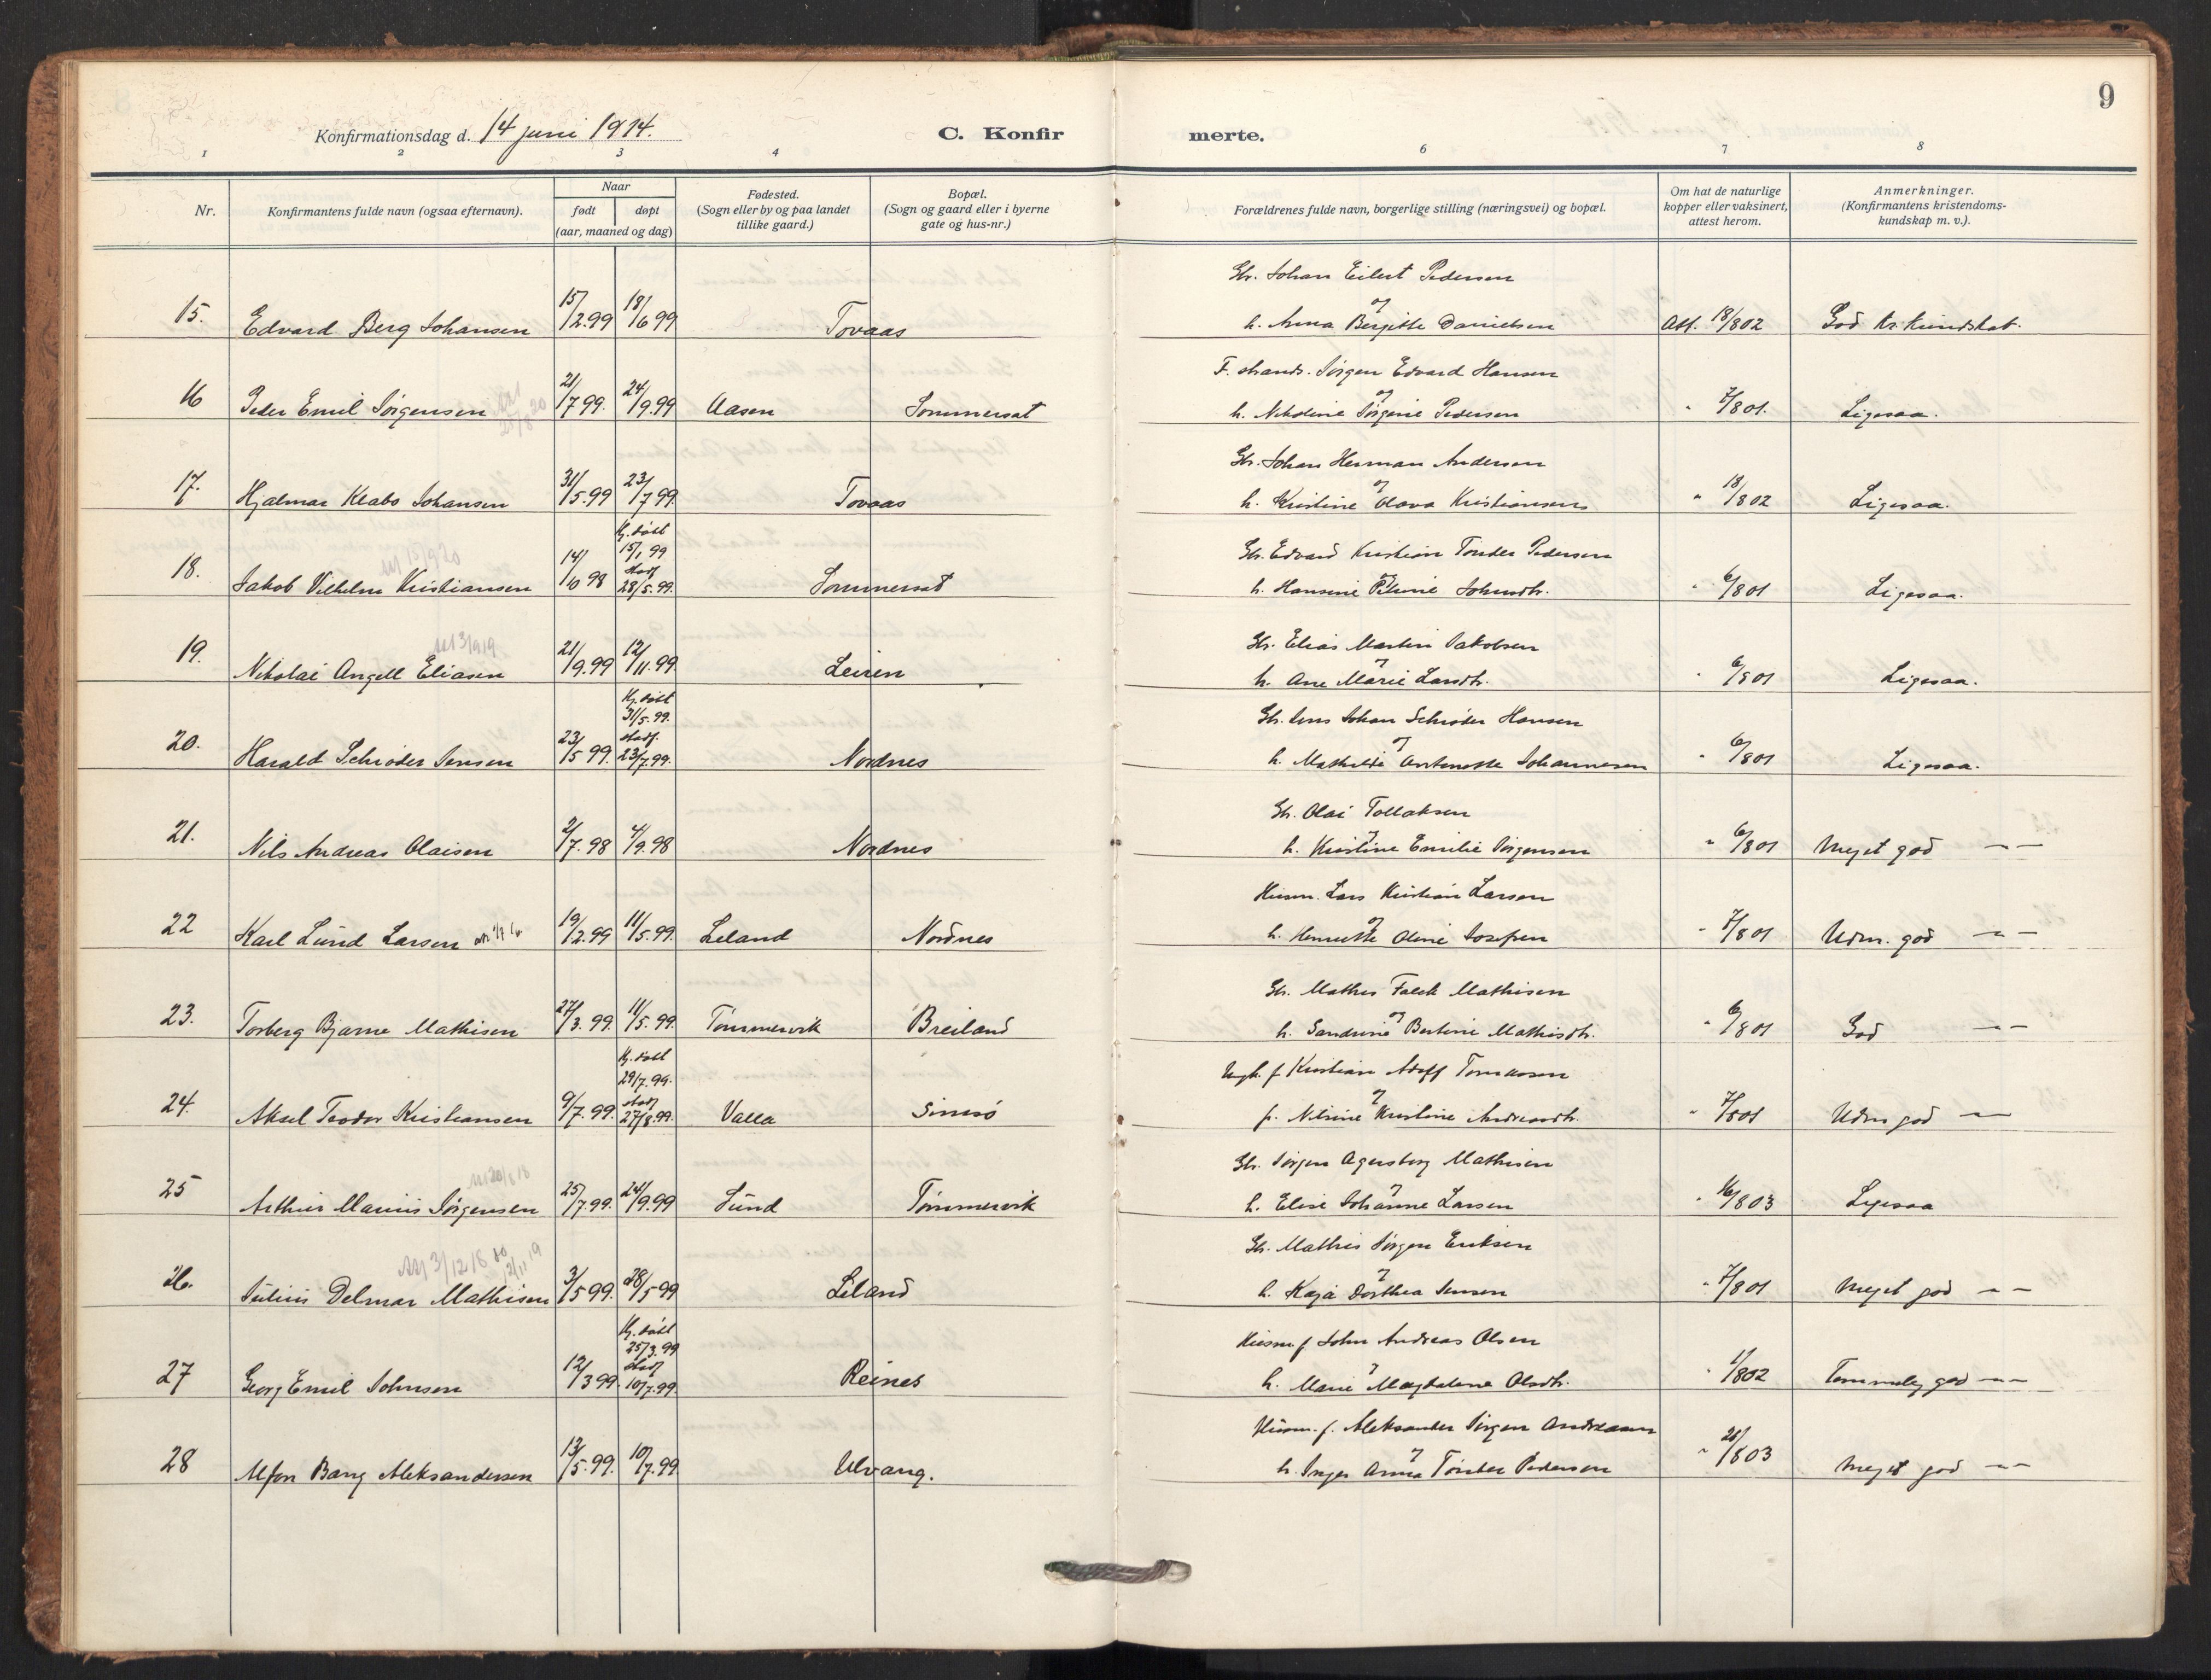 9
Konfirmationsdag d. 14 juni 1914. C. Konfir merte.
1 2 3 4 6 7 8
Nr. Konfirmantens fulde navn (ogsaa efternavn). Naar født døpt (aar, maaned og dag) Fødested. (Sogn eller by og paa landet tillike gaard.) Bopæl. (Sogn og gaard eller i byerne gate og hus-nr.) Forældrenes fulde navn, borgerlige stilling (næringsvei) og bopæl. Om hat de naturlige kopper eller vaksinert, attest herom. Anmerkninger. (Konfirmantens kristendomskundskap m. v.).
Gbr. Johan Eilert Pedersen
og
15. Edvard Berg Johansen 15/2.99 18/6 99 Tovaas h. Anna Bergitte Danielsen Att. 18/802 God kr. kundskab.
F. strands. Jørgen Edvard Hansen
og
16 Peder Emil Jørgensen 21/7 99. 24/9.99 Aasen Sommersæt h. Nikoline Jørgine Pedersen " 7/801. Ligesaa.
Gbr. Johan Herman Andersen
og
17. Hjalmar Klabo Johansen 31/5.99 23/7 99 Tovaas h. Kristine Olava Kristiansen " 18/802 Ligesaa.
Hj. døbt
15/1 99
stadf
Gbr. Edvard Kristian Tønder Pedersen
og
18. Jakob Vilhelm Kristiansen 14/10 98 28/5.99. Sommersæt h. Hansine Petrine Johnsdtr. " 6/801 Ligesaa.
Gbr. Elias Martin Jakobsen
og
19. Nikolai Angell Eliasen 21/9.99 12/11.99. Leiren h. Ane Marie Larsdtr. " 6/801 Ligesaa.
Hj. døbt
31/5.99.
stadf.
Gbr. Jens Johan Schrøder Hansen
og
20. Harald Schrøder Jensen 23/5 99. 23/7.99. Nordnes h. Mathilde Antonette Johannesen " 6/801 Ligesaa.
Gbr. Olai Tollaksen
og
21. Nils Andreas Olaisen 2/7.98 4/9.98 Nordnes h. Kristine Emilie Jørgensen " 6/801 Meget god — —
Husm. Lars Kristian Larsen
og
22 Karl Lund Larsen 19/2.99 11/5.99. Leland Nordnes h. Henrette Oline Josefsen " 7/801 Udm. god — —
Gbr. Mathis Falck Mathisen
og
23. Torberg Bjarne Mathisen 27/3.99. 11/5.99. Tømmervik Breiland h. Sandrine Bertine Mathisdtr. " 6/801 God — —
Hj. døbt
29/7.99.
stadf
Ungk. f Kristian Adolf Tomassen
og
24. Aksel Teodor Kristiansen 9/7.99. 27/8.99. Valla Sinnsø p. Nilsine Kristine Andreasdtr. " 7/801 Udm god —
Gbr. Jørgen Agersborg Mathisen
og
25 Arthur Marius Jørgensen 25/7.99. 24/9.99 Sund Tømmervik h. Elise Johanne Larsen " 16/803 Ligesaa
Gbr. Mathis Jørgen Eriksen
og
26. Julius Delmar Mathisen 3/5 99. 28/5 99 Leland h. Kaja Dorthea Jensen " 7/801 Meget god — —
Hj. døbt
25/3.99
stadf
Husm f John Andreas Olsen
og
27 Georg Emil Johnsen 12/3 99. 10/7.99. Reines h. Marie Magdalene Olsdtr. " 1/802 Temmelig god — —
Husm. f. Aleksander Jørgen Andreasen
og
28 Alfon Bang Aleksandersen 13/5.99. 10/7.99. Ulvang. h. Inger Anna Tønder Pedersen " 28/803 Meget god — —